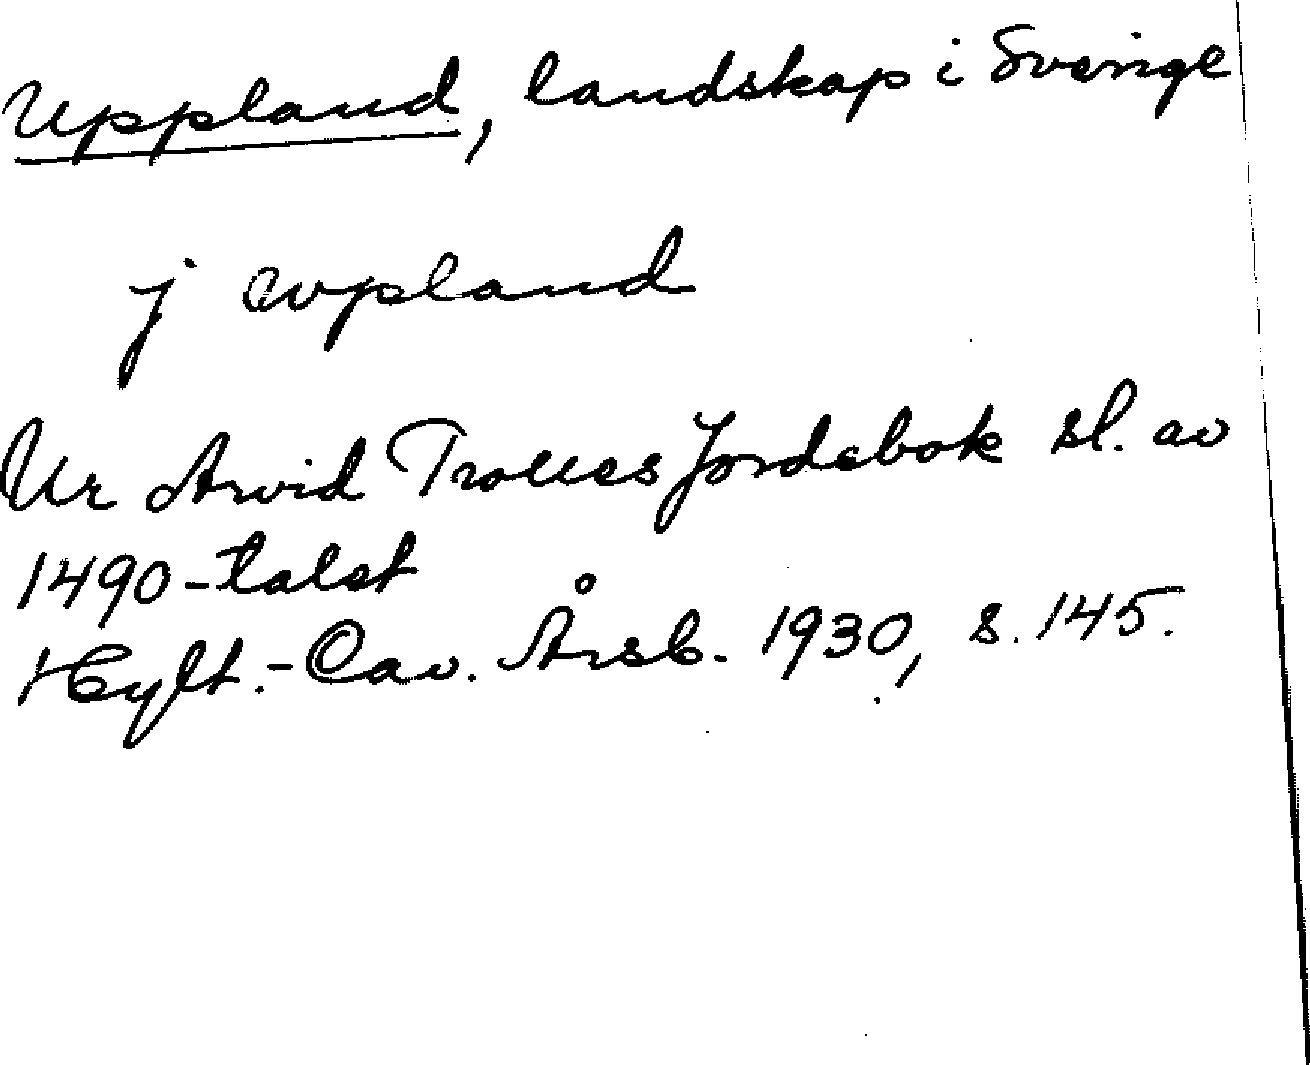 Uppland, landskap i Sverige
j opland
Ur Arvid Trolles Jordebok sl. av
1490-talet
Hylt.-Cav. Årsb. 1930, s. 145.